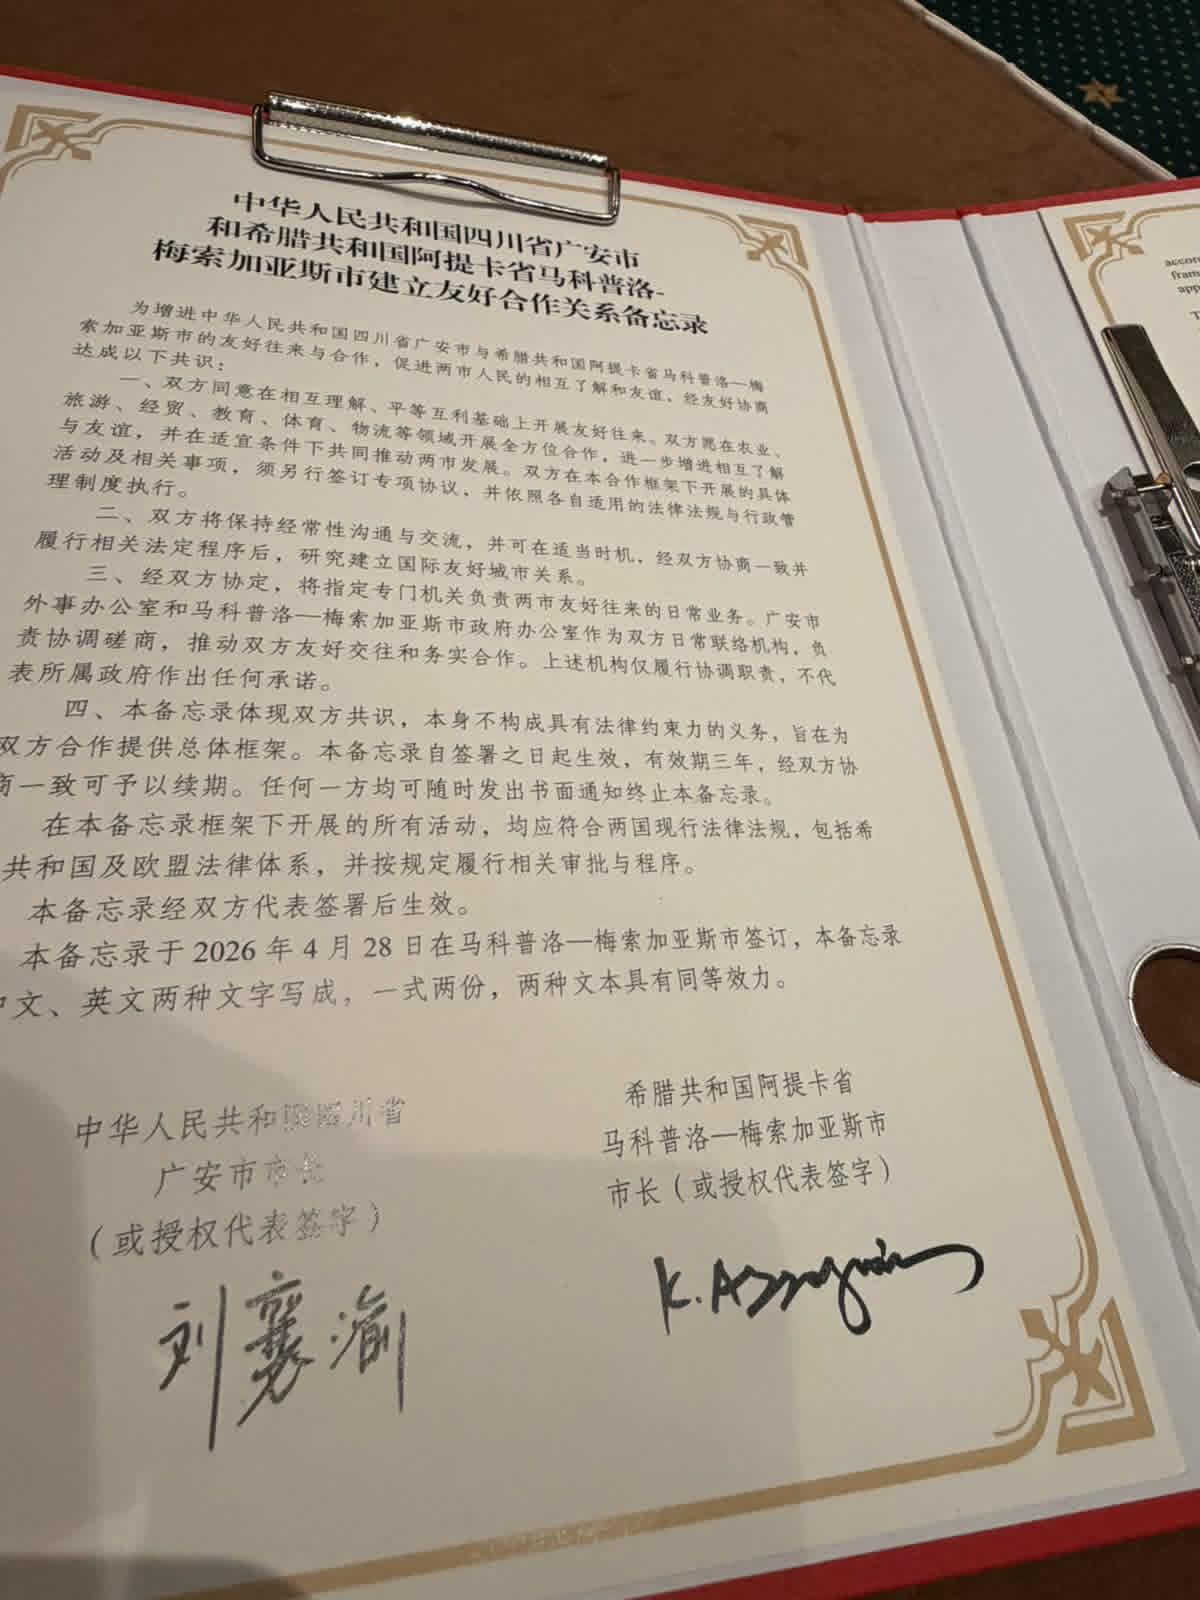 中华人民共和国四川省广安市
和希腊共和国阿提卡省马科普洛-
梅索加亚斯市建立友好合作关系备忘录
为增进中华人民共和国四川省广安市与希腊共和国阿提卡省马科普洛—梅
索加亚斯市的友好往来与合作，促进两市人民的相互了解和友谊，经友好协商
达成以下共识：
一、双方同意在相互理解、平等互利基础上开展友好往来。双方愿在农业、
旅游、经贸、教育、体育、物流等领域开展全方位合作，进一步增进相互了解
与友谊，并在适宜条件下共同推动两市发展。双方在本合作框架下开展的具体
活动及相关事项，须另行签订专项协议，并依照各自适用的法律法规与行政管
理制度执行。
二、双方将保持经常性沟通与交流，并可在适当时机，经双方协商一致并
履行相关法定程序后，研究建立国际友好城市关系。
三、经双方协定，将指定专门机关负责两市友好往来的日常业务。广安市
外事办公室和马科普洛—梅索加亚斯市政府办公室作为双方日常联络机构，负
责协调磋商，推动双方友好交往和务实合作。上述机构仅履行协调职责，不代
表所属政府作出任何承诺。
四、本备忘录体现双方共识，本身不构成具有法律约束力的义务，旨在为
双方合作提供总体框架。本备忘录自签署之日起生效，有效期三年，经双方协
商一致可予以续期。任何一方均可随时发出书面通知终止本备忘录。
在本备忘录框架下开展的所有活动，均应符合两国现行法律法规，包括希
共和国及欧盟法律体系，并按规定履行相关审批与程序。
本备忘录经双方代表签署后生效。
本备忘录于 2026 年 4 月 28 日在马科普洛—梅索加亚斯市签订，本备忘录
中文、英文两种文字写成，一式两份，两种文本具有同等效力。
中华人民共和国四川省
广安市市长
（或授权代表签字）
刘襄渝
希腊共和国阿提卡省
马科普洛—梅索加亚斯市
市长（或授权代表签字）
K.
accor
fram
app
T